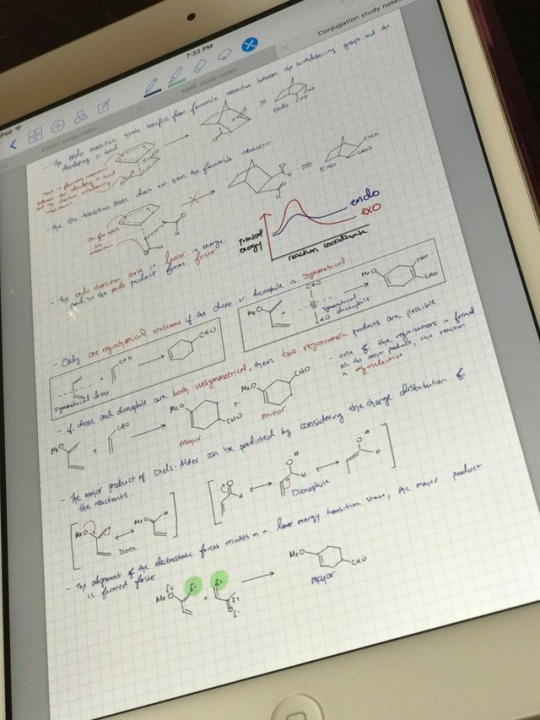 7:32 PM
Conjugation study notes
NMR study notes
- The endo transition state benefits from favorable interaction between the withdrawing groups and the
developing π bond
=
Endo CHO
- The exo transition state does not have the favorable interaction
=
Exo
CHO
endo
exo
Potential
energy
reaction coordinate
- The endo transition state is lower in energy,
and so the endo product forms faster
- Only one regiochemical outcome if the diene or dienophile is symmetrical
+
CHO
CHO
symmetrical diene
MeO
+
CHO
CHO
symmetrical
dienophile
MeO
CHO
CHO
- If diene and dienophile are both unsymmetrical, then two regioisomeric products are possible
- one of the regioisomers is formed
as the major product, the reaction
is regioselective
MeO
+
CHO
MeO
CHO
major
+
MeO
CHO
minor
- The major product of Diels-Alder can be predicted by considering the charge distribution of
the reactants
MeO
MeO
Diene
Dienophile
- The alignment of the electrostatic forces results in a lower energy transition state, the major product
is formed faster
MeO
δ+
δ-
+
δ+
δ+
δ-
MeO
CHO
Major